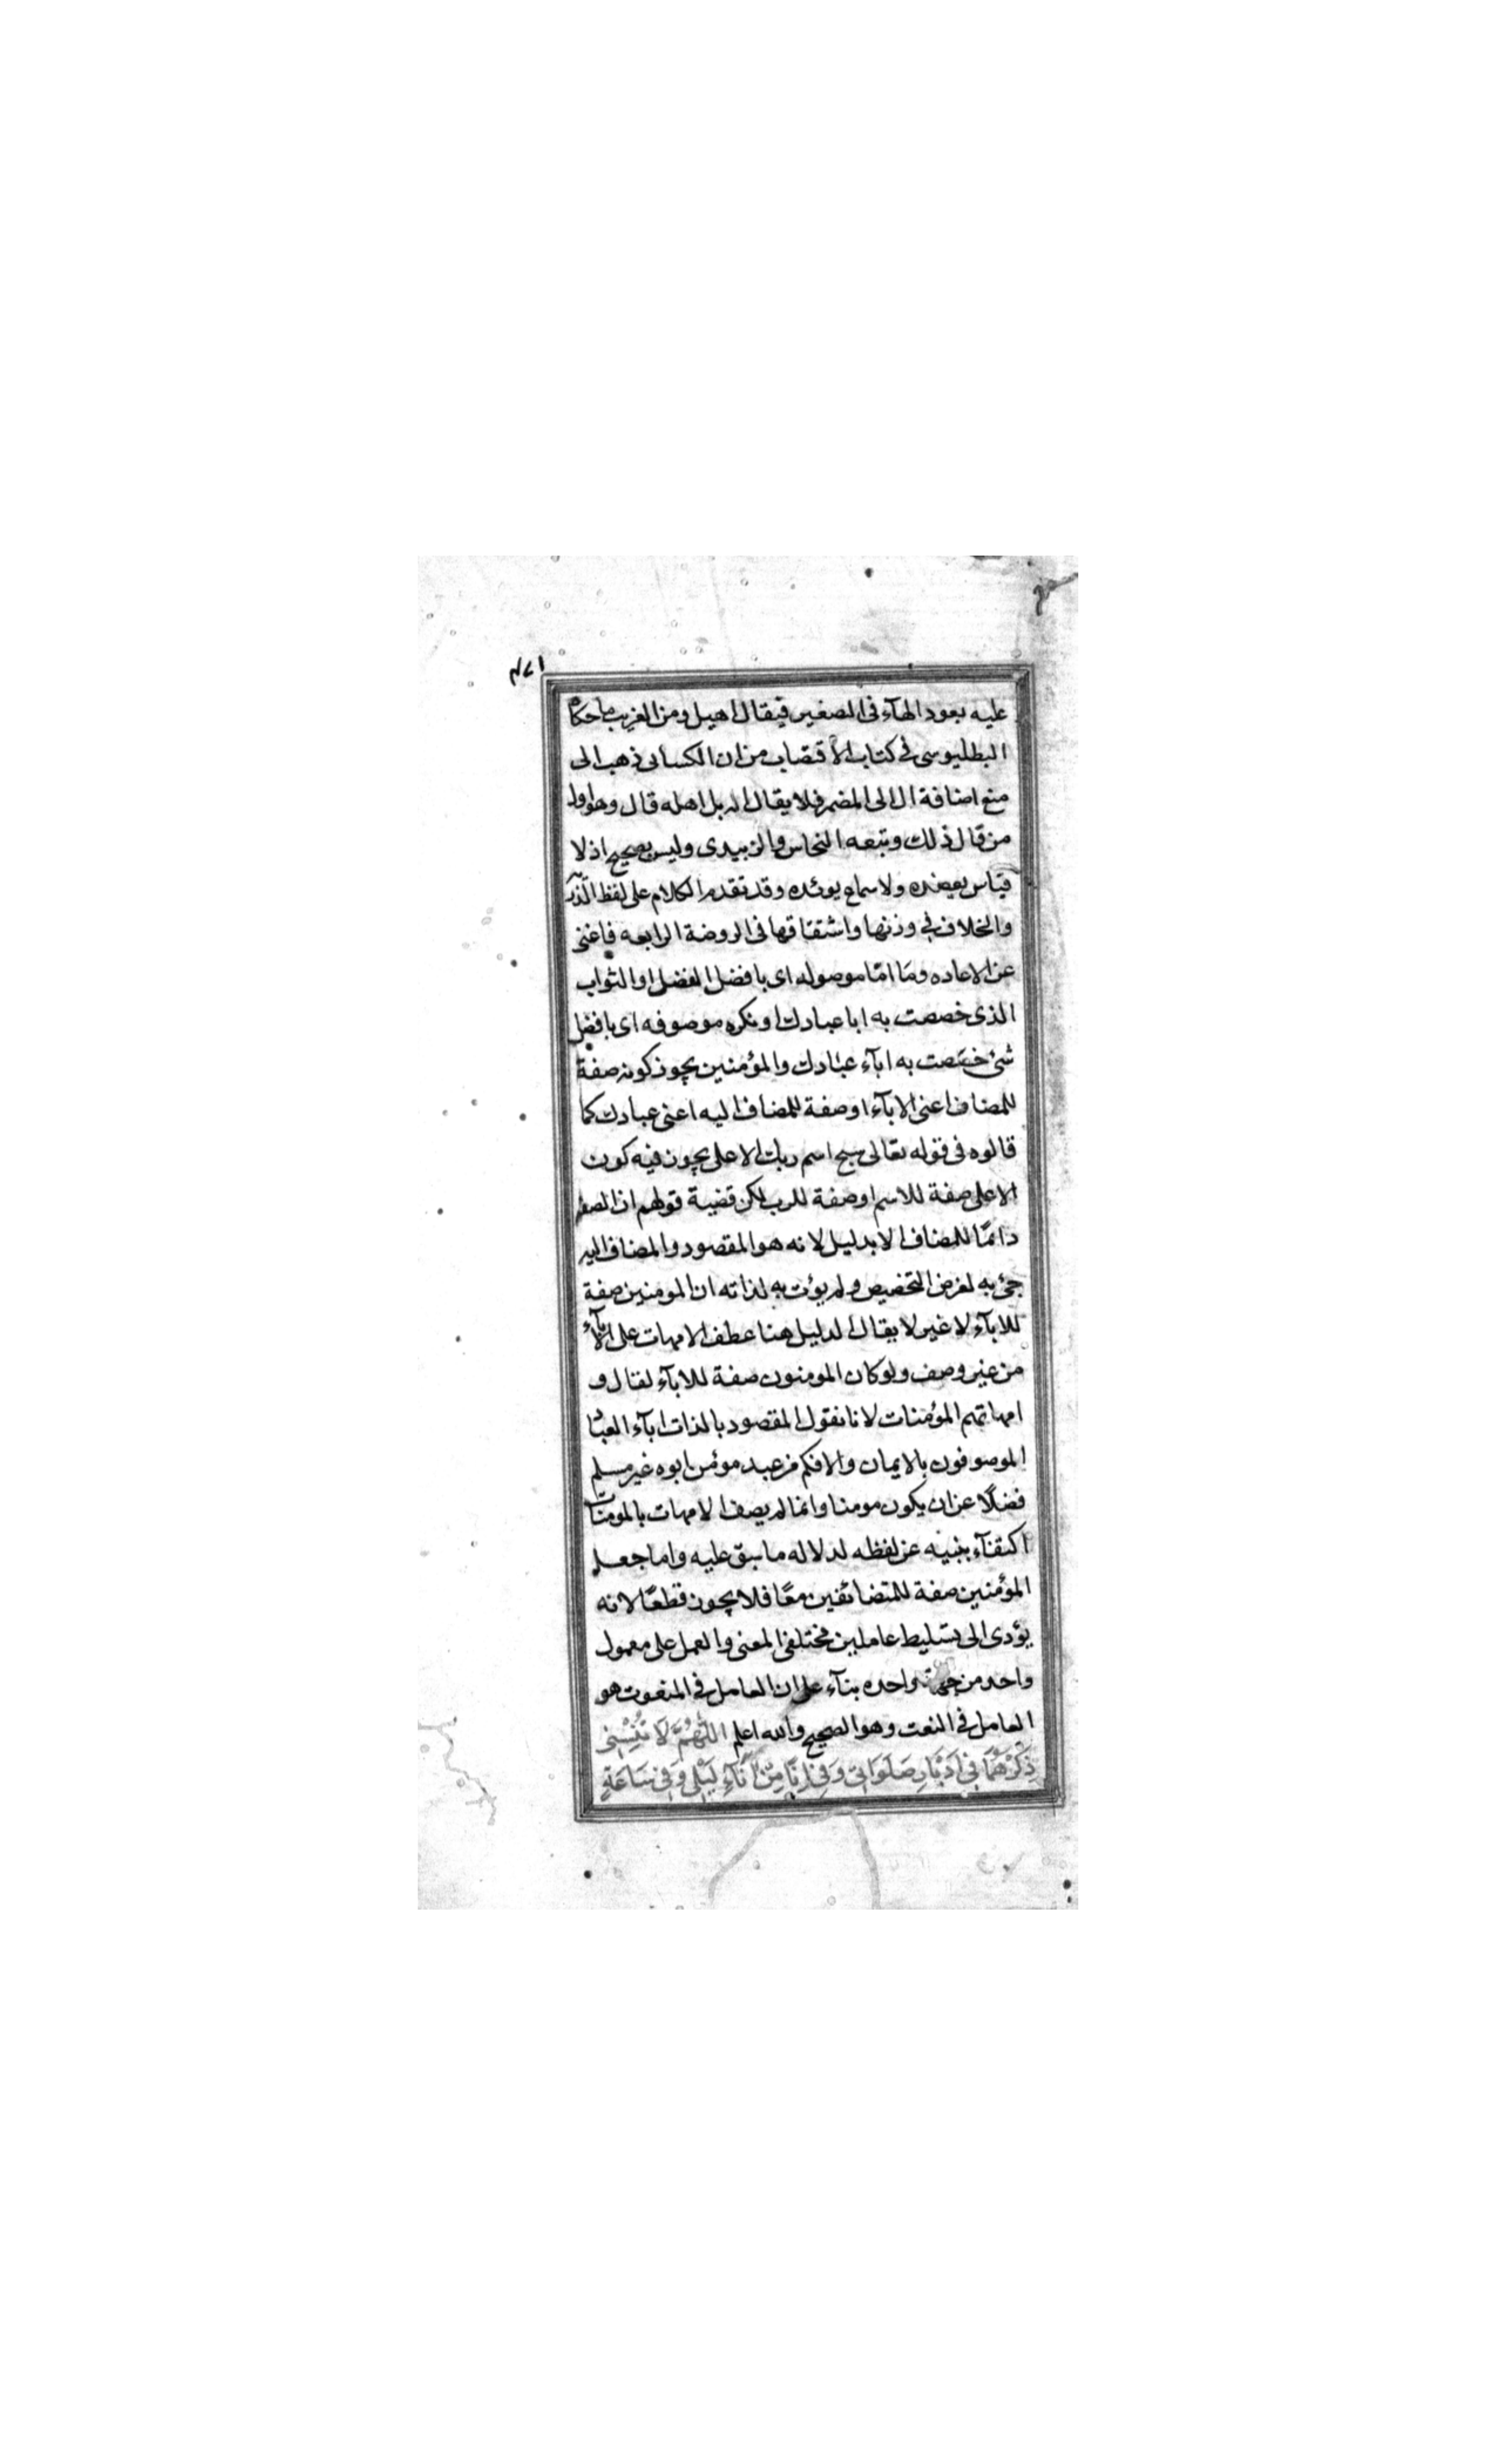 عليه بعود الهآء فى الصغير فيقال اهيل ومن الغريب ما حكاه
البطليوسى فى كتاب الاقتضاب من ان الكسائى ذهب الى
منع اضافة ال الى المضمر فلا يقال اله بل اهله قال وهو اول
من قال ذلك وتبعه النحاس والزبيدى وليس بصحيح اذ لا
قياس يعضده ولا سماع يوئده وقد تقدم الكلام على لفظ الذرية
والخلاف فى وزنها واشتقاقها فى الروضة الرابعه فاغنى
عن الاعاده وما امّا موصوله اى بافضل الفضل او الثواب
الذى خصصت به ابا عبادك او نكره موصوفه اى بافضل
شئ خصصت به ابآء عبادك والمؤمنين يجوز كونه صفة
للمضاف اعنى الابآء او صفة للمضاف اليه اعنى عبادك كما
قالوه فى قوله تعالى سبح اسم ربك الاعلى يجوز فيه كون
الاعلى صفة للاسم او صفة للرب لكن قضية قولهم ان الصفه
دائمًا للمضاف الا بدليل لانه هو المقصود والمضاف اليه
جئ به لغرض التخصيص ولم يؤت به لذاته ان المومنين صفة
للابآء لا غير لا يقال الدليل هنا عطف الامهات على الابآء
من غير وصف ولو كان المومنون صفة للابآء لقال و
امهاتهم المؤمنات لانا نقول المقصود بالذات ابآء العباد
الموصوفون بالايمان والا فكم من عبد مؤمن ابوه غير مسلم
فضلًا عن ان يكون مومنا وانما لم يصف الامهات بالمومنات
اكتفآء بنيه عن لفظه لدلاله ما سبق عليه واما جعل
المؤمنين صفة للمتضائفين معًا فلا يجوز قطعًا لانه
يؤدى الى تسليط عاملين مختلفى المعنى والعمل على معمول
واحد من جهة واحده بنآء على ان العامل فى المنعوت هو
العامل فى النعت وهو الصحيح والله اعلم اللّٰهُمَّ لَا تُنْسِنِى
ذِكْرَهُمَا فِى اَدْبَارِ صَلَوَاتِى وَفِى اِنًا مِنْ اٰنَآءِ لَيْلِى وَفِى سَاعَةٍ